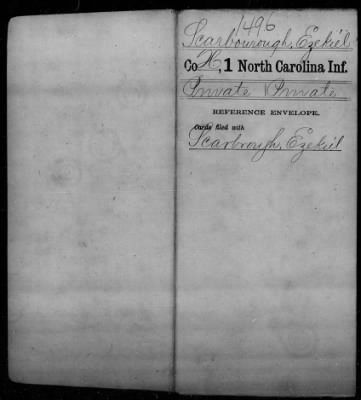 1496
Scarbourough, Ezekiel
Co H, 1 North Carolina Inf.
Private Private
REFERENCE ENVELOPE.
Cards filed with
Scarbrough, Ezekiel